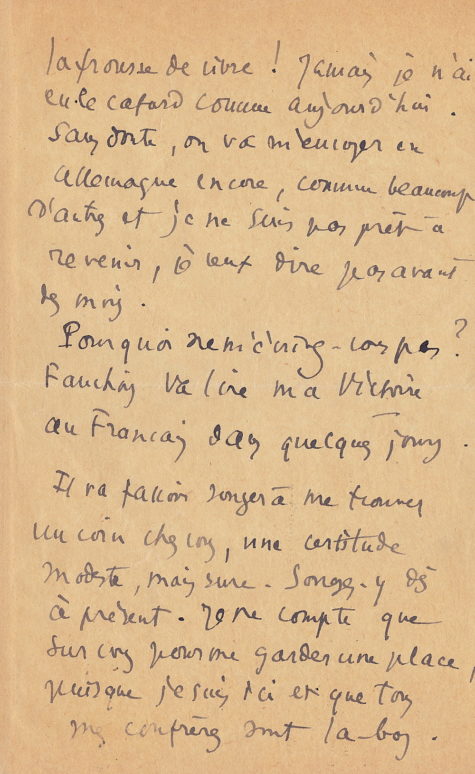 la frousse de vivre ! Jamais je n'ai
eu le cafard comme aujourd'hui .
Sans doute, on va m'envoyer en
Allemagne encore, comme beaucoup
d'autres et je ne suis pas prêt à
revenir, je veux dire pas avant
des mois .
Pourquoi ne m'écrivez-vous pas ?
Fauchois va lire ma Victoire
au Français dans quelques jours .
Il va falloir songer à me trouver
un coin chez vous, une certitude
modeste, mais sure - Songez-y dès
à présent . Je ne compte que
sur vous pour me garder une place,
puisque je suis ici et que tous
mes confrères sont là-bas .